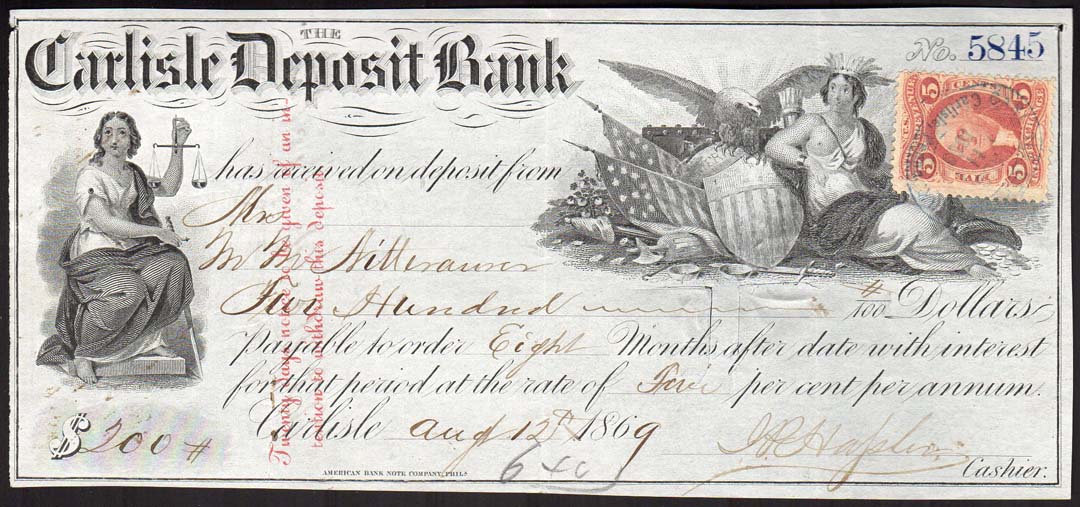 THE
Carlisle Deposit Bank
No. 5845
has arrived on deposit from
Mrs
M M
Hundred
#/100 Dollars
Payable to order Eight Months after date with interest
for that period at the rate of Five per cent per annum.
Carlisle Aug 12th 1869
$ 200 #
Cashier.
AMERICAN BANK NOTE COMPANY, PHILA
Twenty days notice to be given of an in-
tention to withdraw this deposit
5 5
5 5
FIVE
6 40